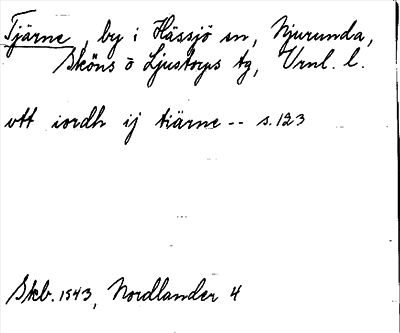 Tjärne, by i Hässjö sn, Njurunda,
Sköns o Ljustorps tg, Vrnl. l.
ott iordh ij tiärne -- s. 123
Skb. 1543, Nordlander 4